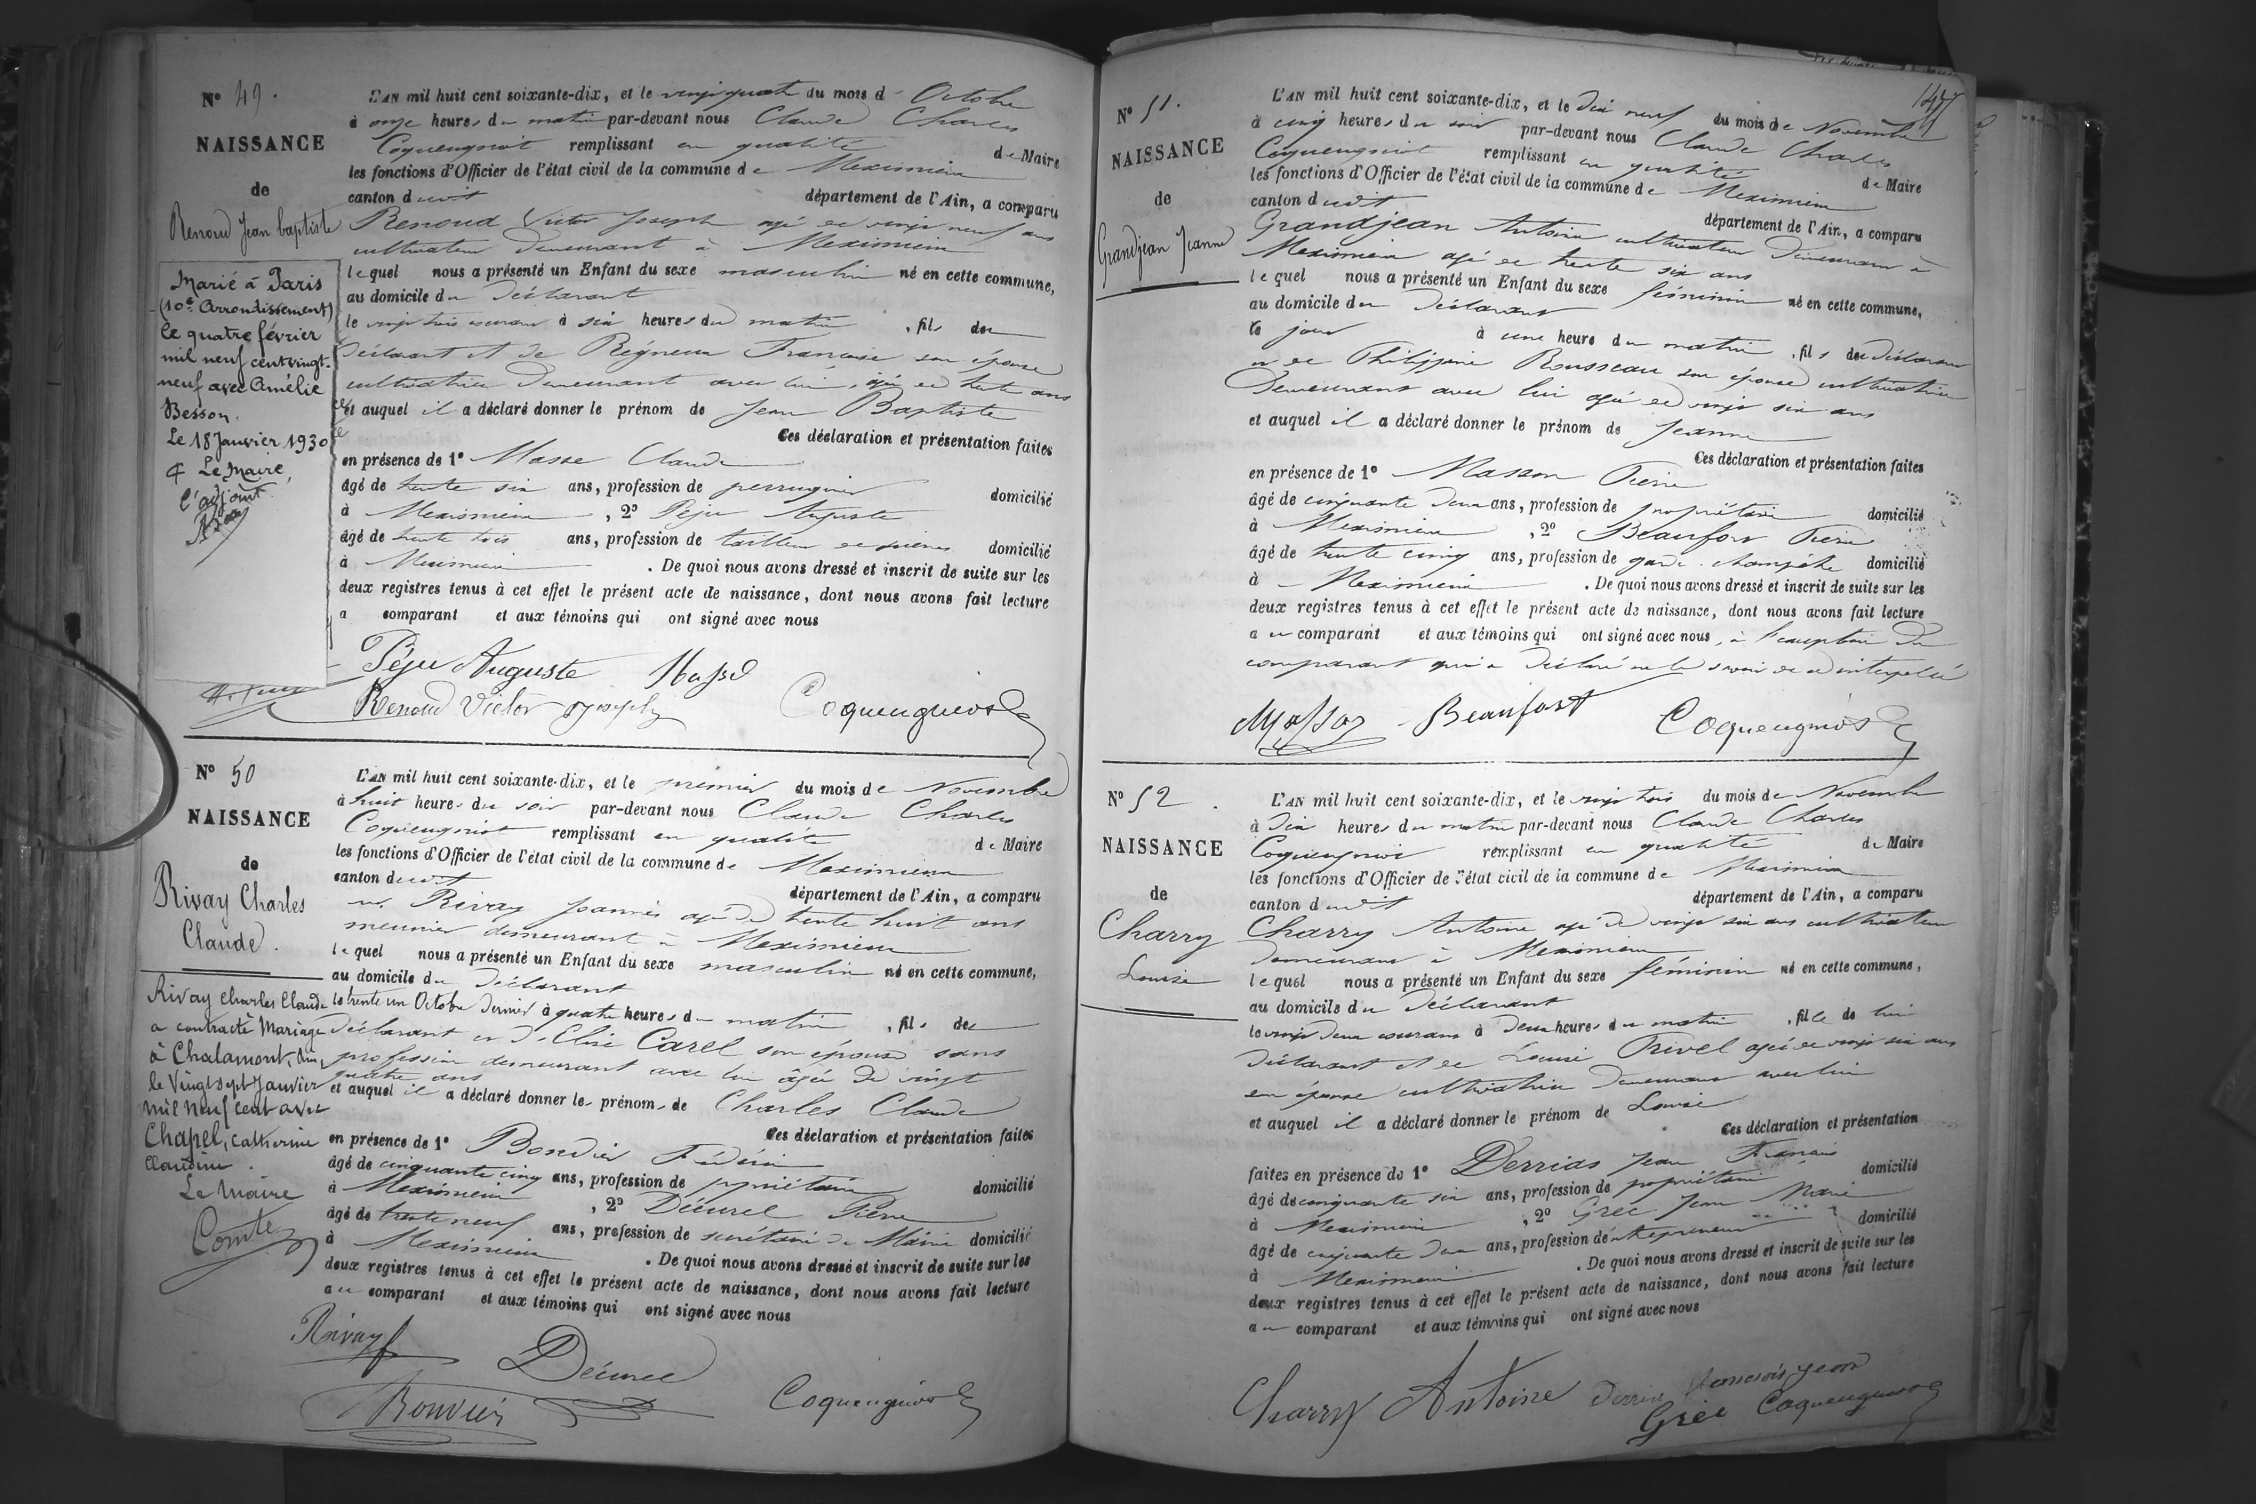 N° 49.
NAISSANCE
de
Renoud Jean baptiste
Marié à Paris
(10e Arrondissement)
le quatre février
mil neuf cent vingt-
neuf avec Amélie
Besson.
Le 18 Janvier 1930
Le Maire,
l'adjoint
L'AN mil huit cent soixante-dix, et le vingt quatre du mois d' Octobre
à onze heures du matin par-devant nous Claude Charles
Coquengniot remplissant en qualité de Maire
les fonctions d'Officier de l'état civil de la commune de Meximieux
canton dudit département de l'Ain, a comparu
Renoud Victor Joseph agé de vingt neuf ans
cultivateur demeurant à Meximieux
lequel nous a présenté un Enfant du sexe masculin né en cette commune,
au domicile du Déclarant
le vingt trois courant à six heures du matin , fils du
Déclarant et de Françoise son épouse
cultivatrice demeurant avec lui, agée de trente ans
et auquel il a déclaré donner le prénom de Jean Baptiste
Ces déclaration et présentation faites
en présence de 1° Masse Claude
âgé de trente six ans, profession de perruquier domicilié
à Meximieux , 2° Péju Auguste
âgé de trente trois ans, profession de tailleur de pierres domicilié
à Meximieux . De quoi nous avons dressé et inscrit de suite sur les
deux registres tenus à cet effet le présent acte de naissance, dont nous avons fait lecture
a comparant et aux témoins qui ont signé avec nous
Péju Auguste Masse
Renoud Victor joseph Coquengniot
N° 50
NAISSANCE
de
Rivay Charles
Claude.
Rivay Charles Claude
a contracté Mariage
à Chalamont, Ain,
le Vingt sept Janvier
mil neuf cent avec
Chapel, Catherine
Claudine.
Le Maire
Comte
L'AN mil huit cent soixante-dix, et le premier du mois de Novembre
à huit heures du soir par-devant nous Claude Charles
Coquengniot remplissant en qualité de Maire
les fonctions d'Officier de l'état civil de la commune de Meximieux
canton dudit département de l'Ain, a comparu
Rivay Joannès agé de trente huit ans
meunier demeurant à Meximieux
lequel nous a présenté un Enfant du sexe masculin né en cette commune,
au domicile du Déclarant
le trente un Octobre dernier à quatre heures du matin , fils du
déclarant et d'Elise Carel son épouse sans
profession demeurant avec lui âgée de vingt
quatre ans
et auquel il a déclaré donner les prénoms de Charles Claude
Ces déclaration et présentation faites
en présence de 1° Bouvier
âgé de cinquante cinq ans, profession de propriétaire domicilié
à Meximieux , 2° Décurel Pierre
âgé de trente neuf ans, profession de secrétaire de Mairie domicilié
à Meximieux . De quoi nous avons dressé et inscrit de suite sur les
deux registres tenus à cet effet le présent acte de naissance, dont nous avons fait lecture
au comparant et aux témoins qui ont signé avec nous
Rivay Décurel
Bouvier Coquengniot
147
N° 51.
NAISSANCE
de
Grandjean Jeanne
L'AN mil huit cent soixante-dix, et le dix neuf du mois de Novembre
à cinq heures du soir par-devant nous Claude Charles
Coquengniot remplissant en qualité de Maire
les fonctions d'Officier de l'état civil de la commune de Meximieux
canton dudit département de l'Ain, a comparu
Grandjean Antoine cultivateur demeurant à
Meximieux agé de trente six ans
lequel nous a présenté un Enfant du sexe féminin né en cette commune,
au domicile du Déclarant
le jour à une heure du matin , fils du Déclarant
et de Philippine Rousseau son épouse cultivatrice
demeurant avec lui agée de vingt six ans
et auquel il a déclaré donner le prénom de Jeanne
Ces déclaration et présentation faites
en présence de 1° Masson Pierre
âgé de cinquante deux ans, profession de propriétaire domicilié
à Meximieux , 2° Beaufort Pierre
âgé de trente cinq ans, profession de garde-champêtre domicilié
à Meximieux . De quoi nous avons dressé et inscrit de suite sur les
deux registres tenus à cet effet le présent acte de naissance, dont nous avons fait lecture
au comparant et aux témoins qui ont signé avec nous, à l'exception du
comparant qui a déclaré ne le savoir de ce interpellé
Masson Beaufort Coquengniot
N° 52.
NAISSANCE
de
Charry
Louise
L'AN mil huit cent soixante-dix, et le vingt trois du mois de Novembre
à dix heures du matin par-devant nous Claude Charles
Coquengniot remplissant en qualité de Maire
les fonctions d'Officier de l'état civil de la commune de Meximieux
canton dudit département de l'Ain, a comparu
Charry Antoine agé de vingt six ans cultivateur
demeurant à Meximieux
lequel nous a présenté un Enfant du sexe féminin né en cette commune,
au domicile du Déclarant
le vingt deux courant à deux heures du matin , fille de lui
Déclarant et de Louise Privel agée de vingt six ans
son épouse cultivatrice demeurant avec lui
et auquel il a déclaré donner le prénom de Louise
Ces déclaration et présentation
faites en présence de 1° Derrias Jean François
âgé de cinquante six ans, profession de propriétaire domicilié
à Meximieux , 2° Grée Jean Marie
âgé de cinquante deux ans, profession d'entrepreneur domicilié
à Meximieux . De quoi nous avons dressé et inscrit de suite sur les
deux registres tenus à cet effet le présent acte de naissance, dont nous avons fait lecture
au comparant et aux témoins qui ont signé avec nous
Charry Antoine francois jean
Grée Coquengniot